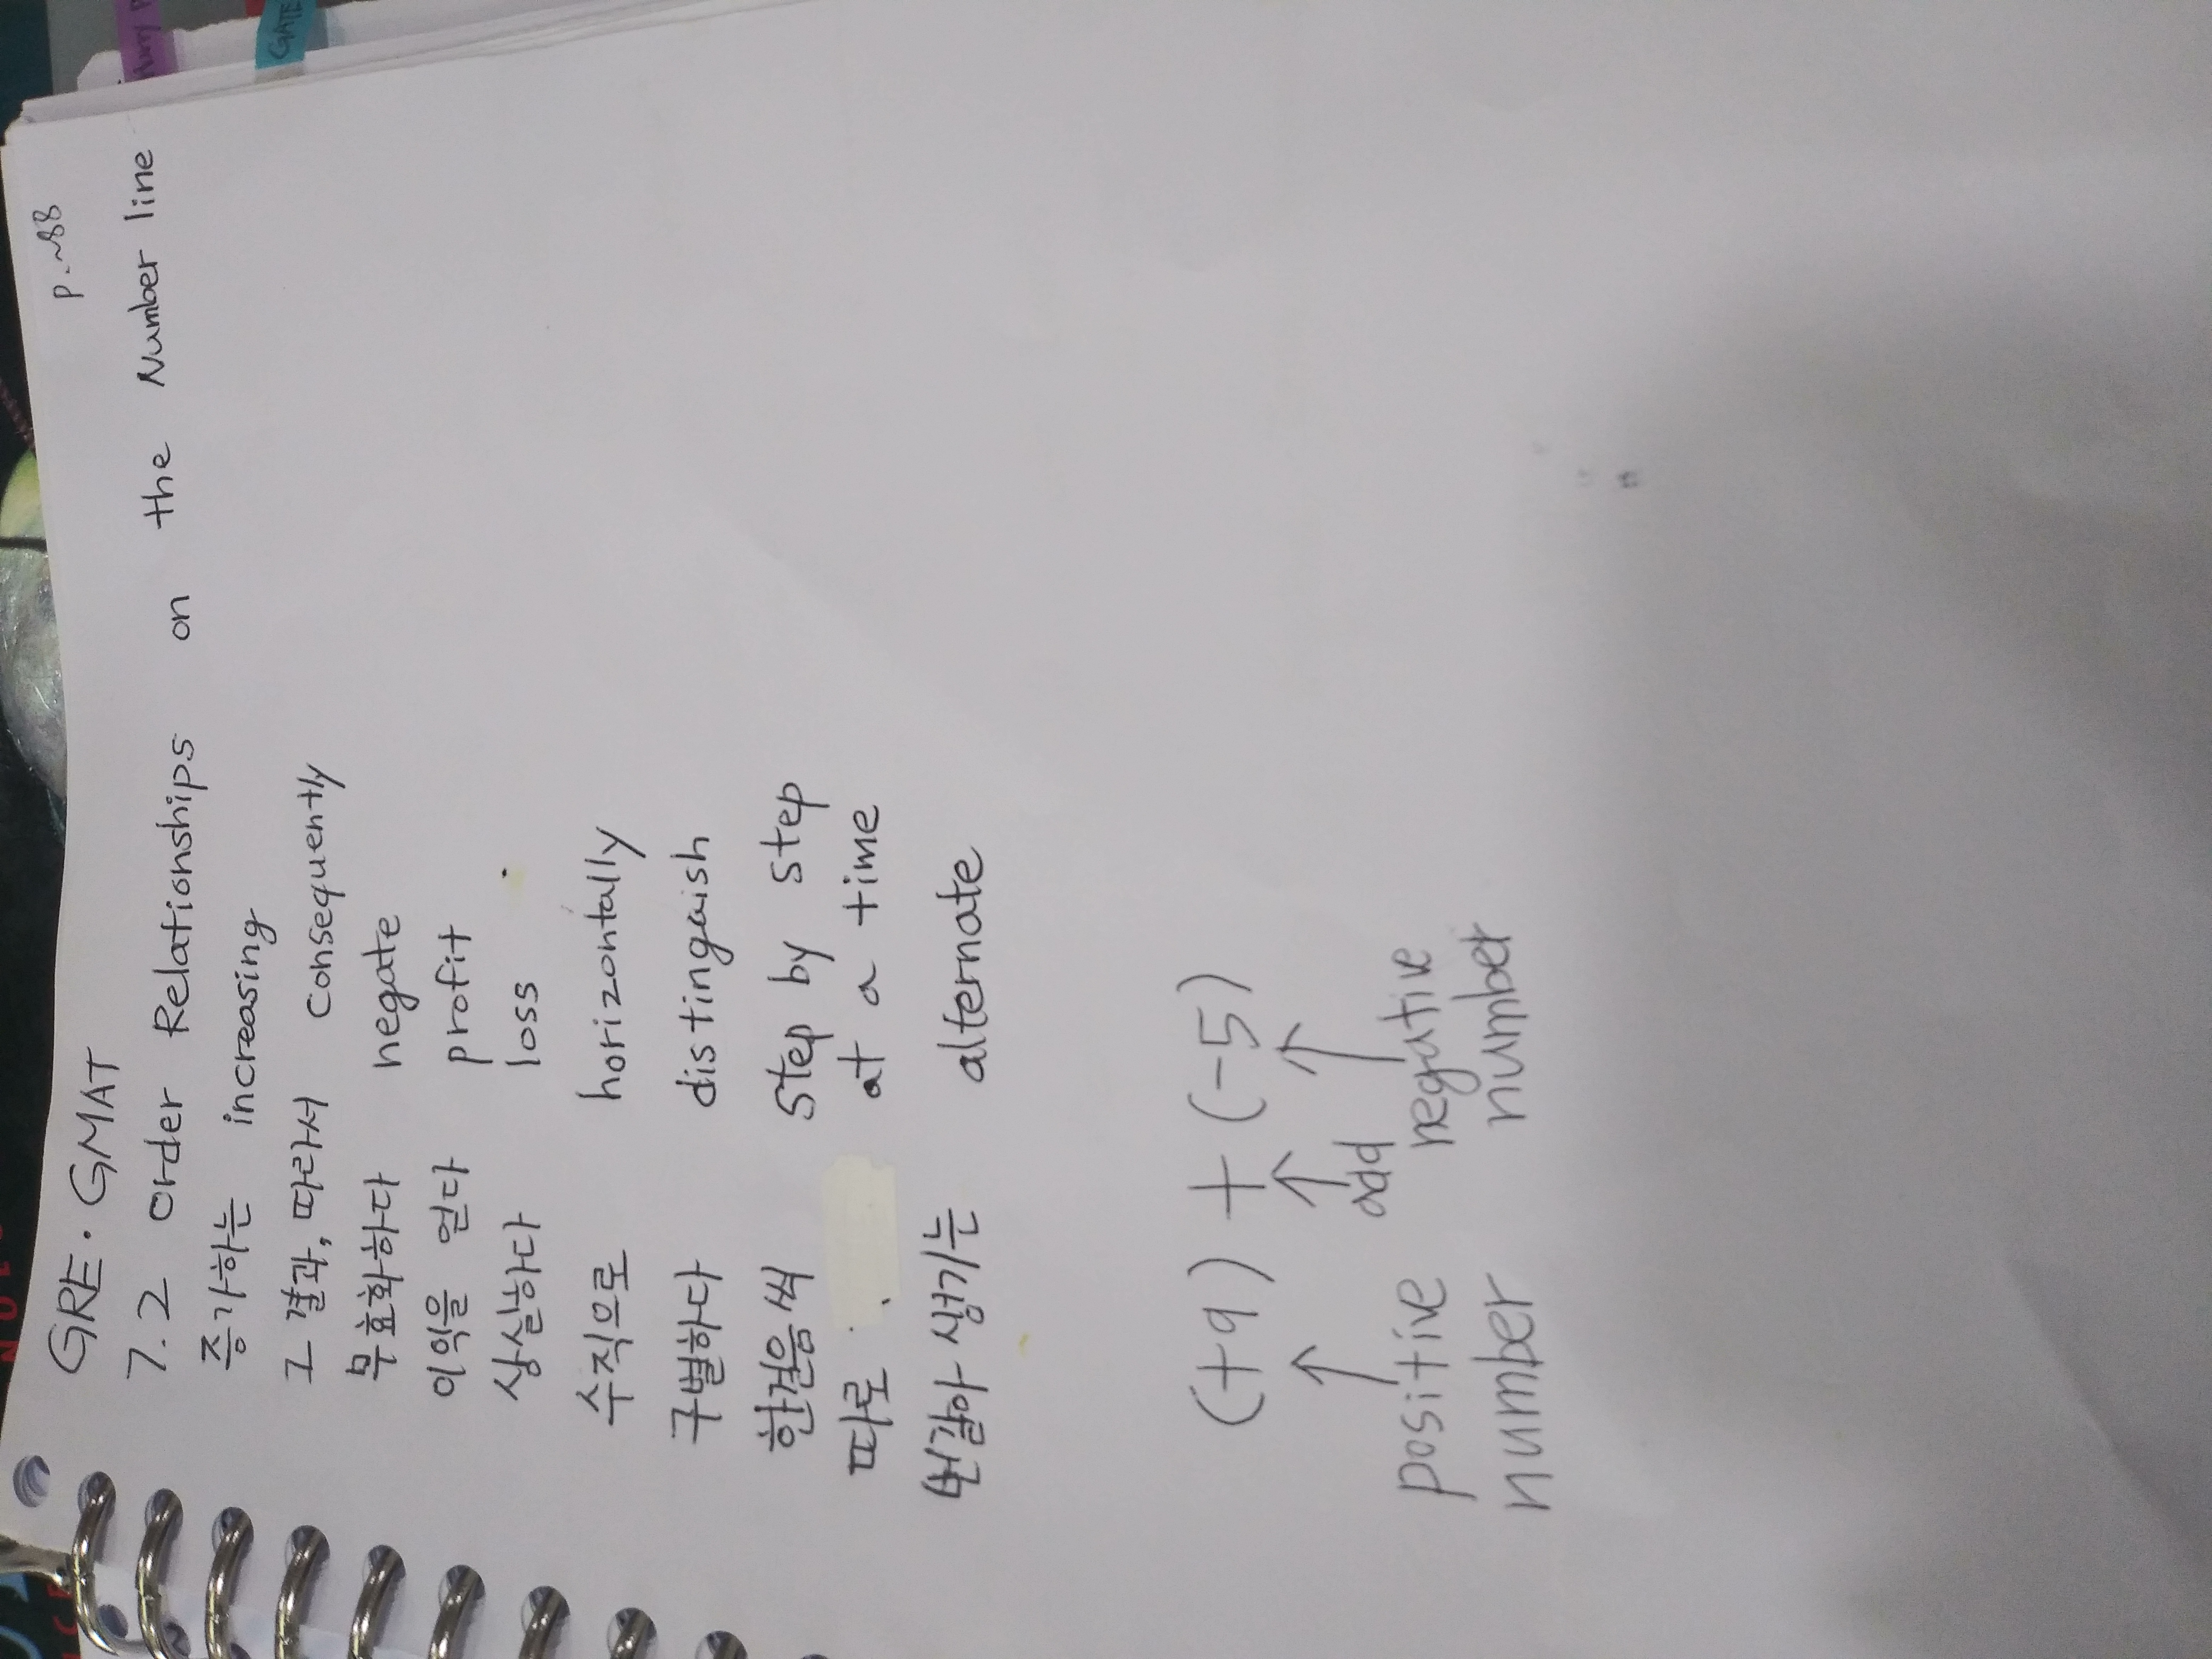 GRE·GMAT p.~88
7.2 Order Relationships on the Number line
증가하는 increasing
그 결과, 따라서 consequently
무효화하다 negate
이익을 얻다 profit
상실하다 loss
수직으로 horizontally
구별하다 distinguish
한걸음씩 step by step
따로 at a time
번갈아 생기는 alternate
(+9) + (-5)
↑ ↑ ↑
positive number add negative number
GATE